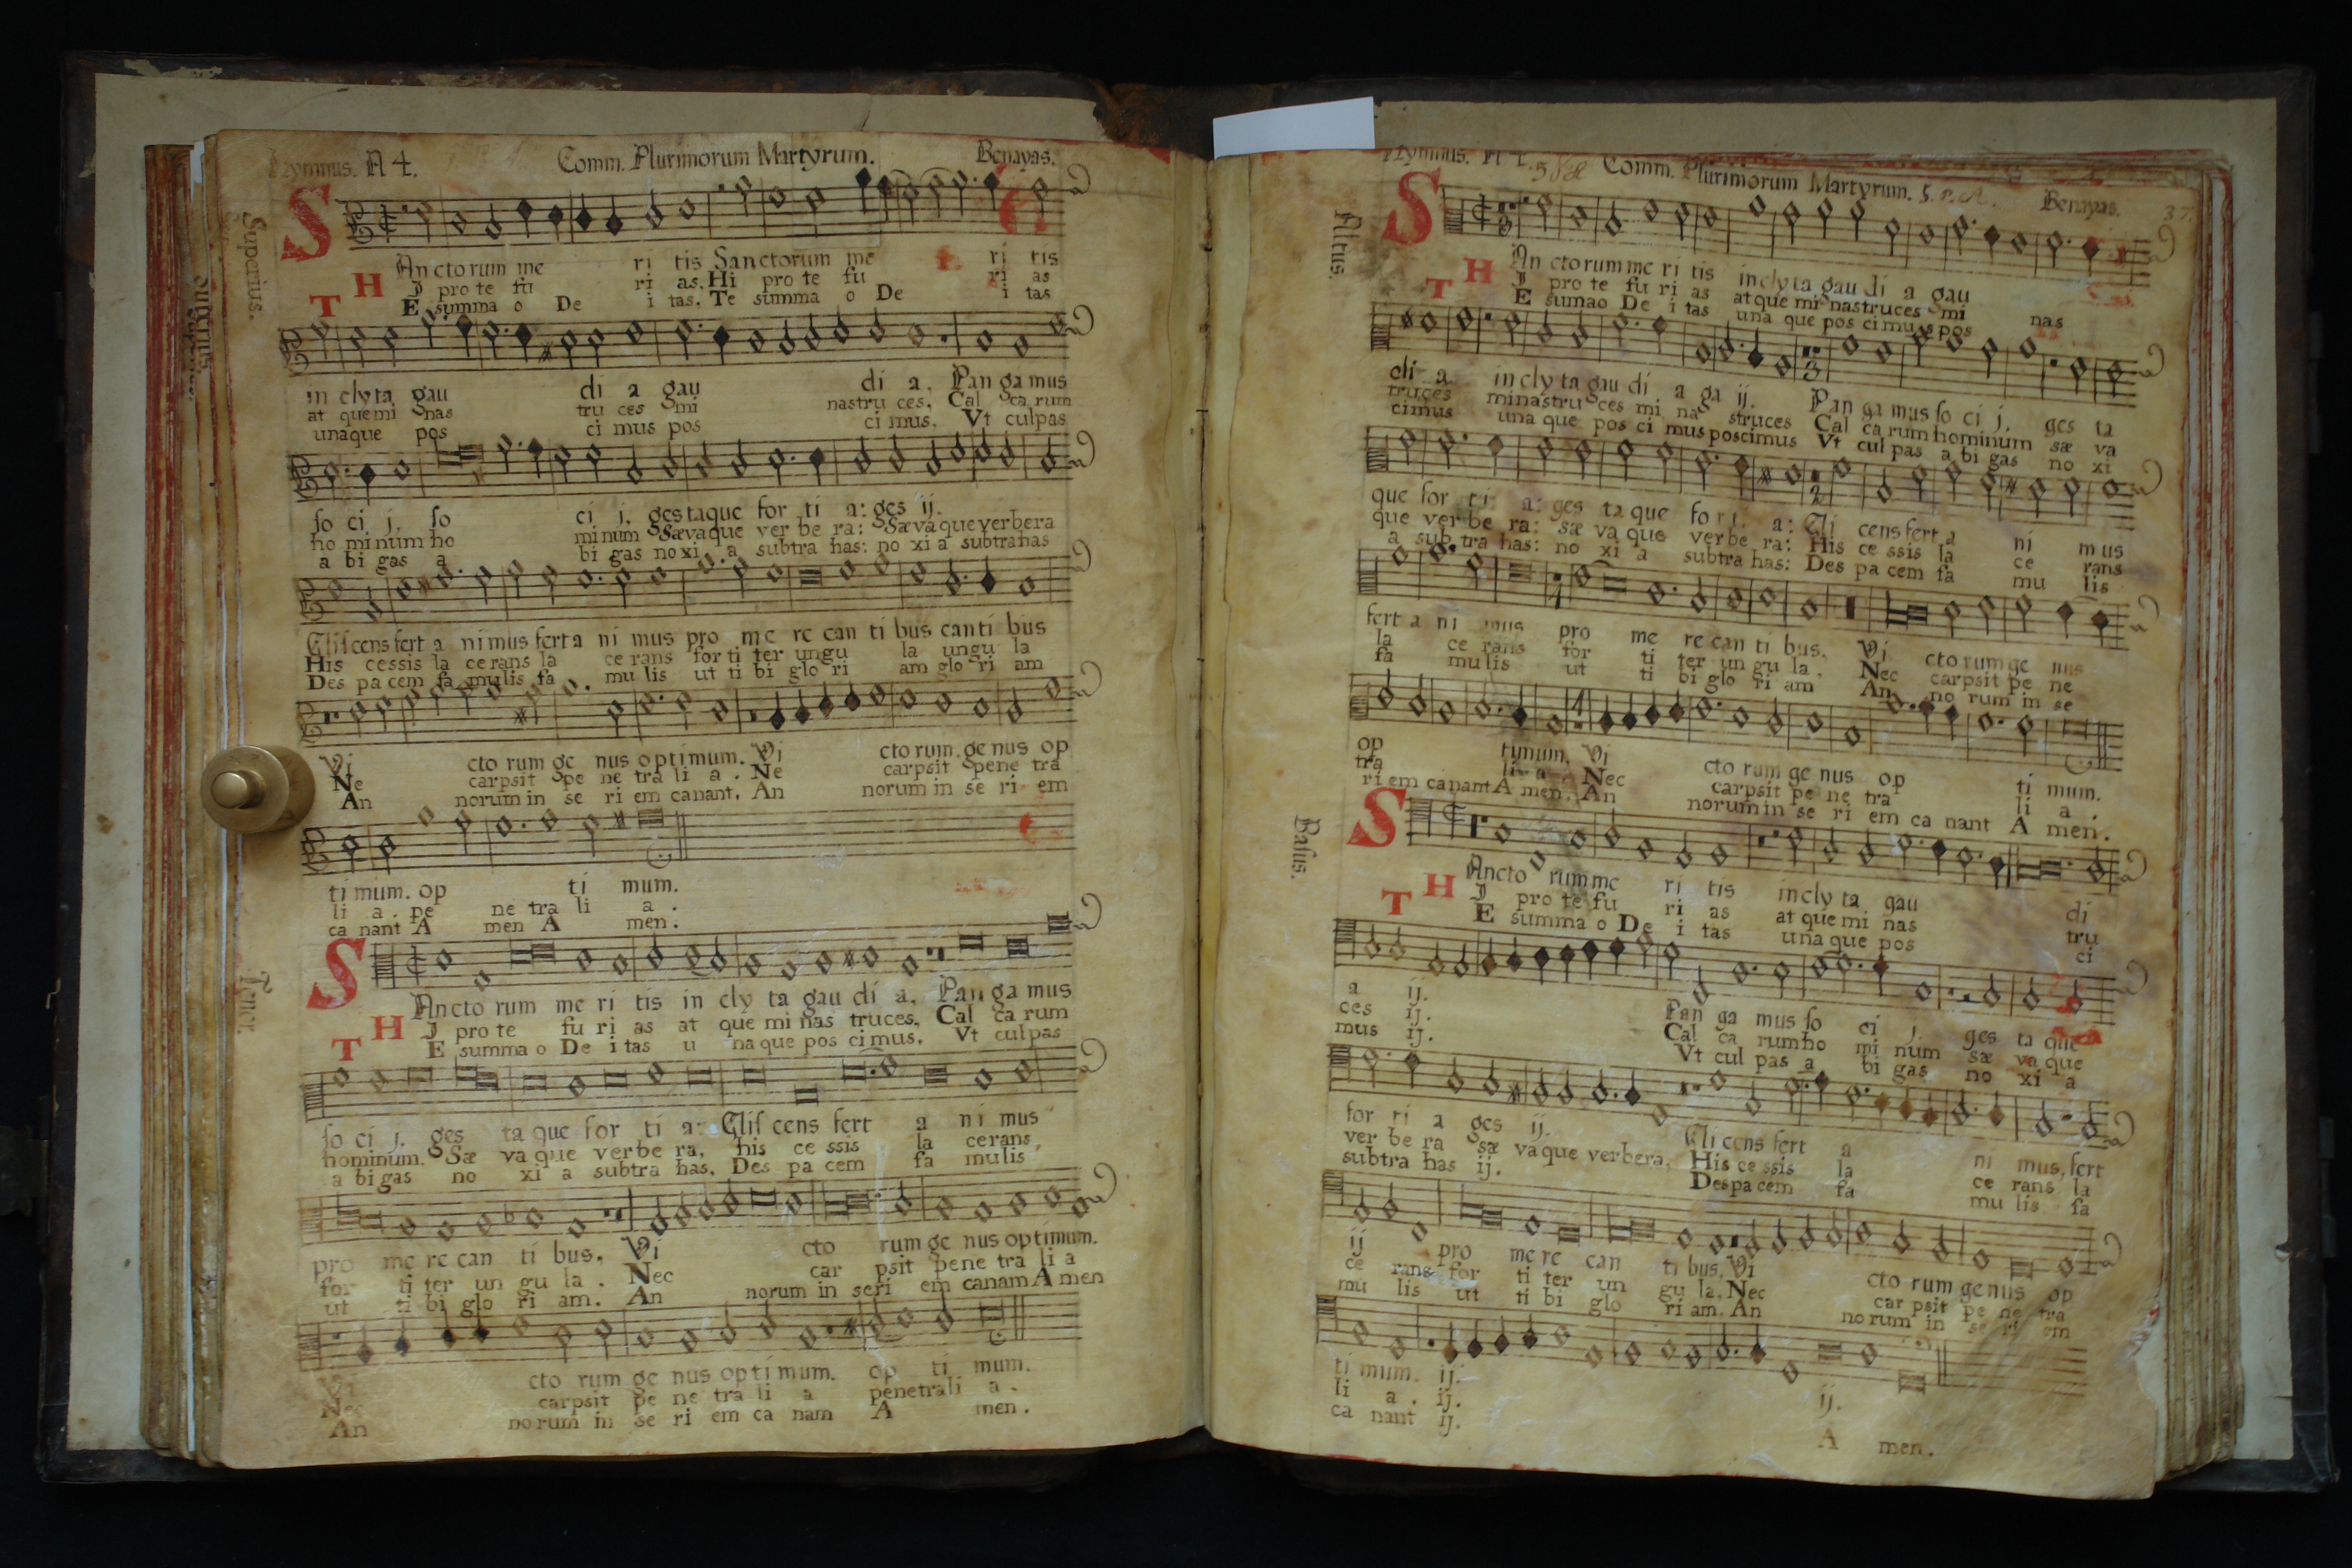 Hymnus. A 4. Comm. Plurimorum Martyrum. Benayas.
Superius.
S An cto rum me ri tis Sanctorum me ri tis
H I pro te fu ri as. Hi pro te fu ri as
T E summa o De i tas. Te summa o De i tas
in clyta gau di a gau di a. Pan ga mus
at que mi nas tru ces mi nas tru ces. Cal ca rum
una que pos ci mus pos ci mus. Vt culpas
so ci j. so ci j. ges ta que for ti a: ges ij.
ho mi num ho mi num Sæ va que ver be ra: Sæ va que verbera
a bi gas a bi gas no xi a subtra has: no xi a subtrahas
Glis cens fert a ni mus fert a ni mus pro me re can ti bus can ti bus
His cessis la ce rans la ce rans for ti ter ungu la ungu la
Des pa cem fa mulis fa mu lis ut ti bi glo ri am glo ri am
Vi cto rum ge nus optimum. Vi cto rum. ge nus op
Ne carpsit pe ne tra li a. Ne carpsit pene tra
An norum in se ri em canant. An norum in se ri em
ti mum. op ti mum.
li a. pe ne tra li a.
ca nant A men A men.
Tenor.
S An cto rum me ri tis in cly ta gau di a, Pan ga mus
H I pro te fu ri as at que mi nas truces, Cal ca rum
T E summa o De i tas u na que pos ci mus, Vt culpas
so ci j. ges ta que for ti a: Glis cens fert a ni mus
hominum. Sæ va que verbe ra, his ce ssis la cerans,
a bi gas no xi a subtra has, Des pa cem fa mulis
pro me re can ti bus. Vi cto rum ge nus optimum.
for ti ter un gu la. Nec car psit pene tra li a
ut ti bi glo ri am. An norum in seri em canam A men
cto rum ge nus op ti mum. op ti mum.
carpsit pe ne tra li a penetrali a.
An no rum in se ri em ca nam A men.
Hymnus. A 4. Comm. Plurimorum Martyrum. Benayas. 37.
Altus.
S An cto rum me ri tis in cly ta gau di a gau
H I pro te fu ri as at que mi nas truces mi nas
T E suma o De i tas una que pos ci mus pos
di a in cly ta gau di a ga ij. Pan ga mus so ci j. ges ta
truces mi nas tru ces mi na struces Cal ca rum hominum sæ va
cimus una que pos ci mus poscimus Vt cul pas a bi gas no xi
que for ti a: ges ta que for ti a: Gli cens fert a ni mus
que ver be ra: sæ va que verbe ra: His ce ssis la ce rans
a sub tra has: no xi a subtra has: Des pa cem fa mu lis
fert a ni mus pro me re can ti bus. Vi cto rum ge nus
la ce rans for ti ter un gu la. Nec carpsit pe ne
fa mu lis ut ti bi glo ri am An no rum in se
op timum. Vi cto rum ge nus op ti mum.
tra li a. Nec carpsit pe ne tra li a.
ri em ca nant A men. An norum in se ri em ca nant A men.
Basus.
S An cto rum me ri tis in cly ta gau di
H I pro te fu ri as at que mi nas tru
T E summa o De i tas una que pos ci
a ij. Pan ga mus so ci j. ges ta que
ces ij. Cal ca rum ho mi num sæ va que
mus ij. Vt cul pas a bi gas no xi a
for ti a ges ij. Gli cens fert a ni mus, fert
ver be ra sæ va que verbera, His ce ssis la ce rans la
subtra has ij. Des pa cem fa mu lis fa
ij pro me re can ti bus, Vi cto rum ge nus op
ce rans for ti ter un gu la, Nec car psit pe ne tra
mu lis ut ti bi glo ri am. An no rum in se ri em
ti mum. ij. ij.
li a. ij.
ca nant ij. A men.